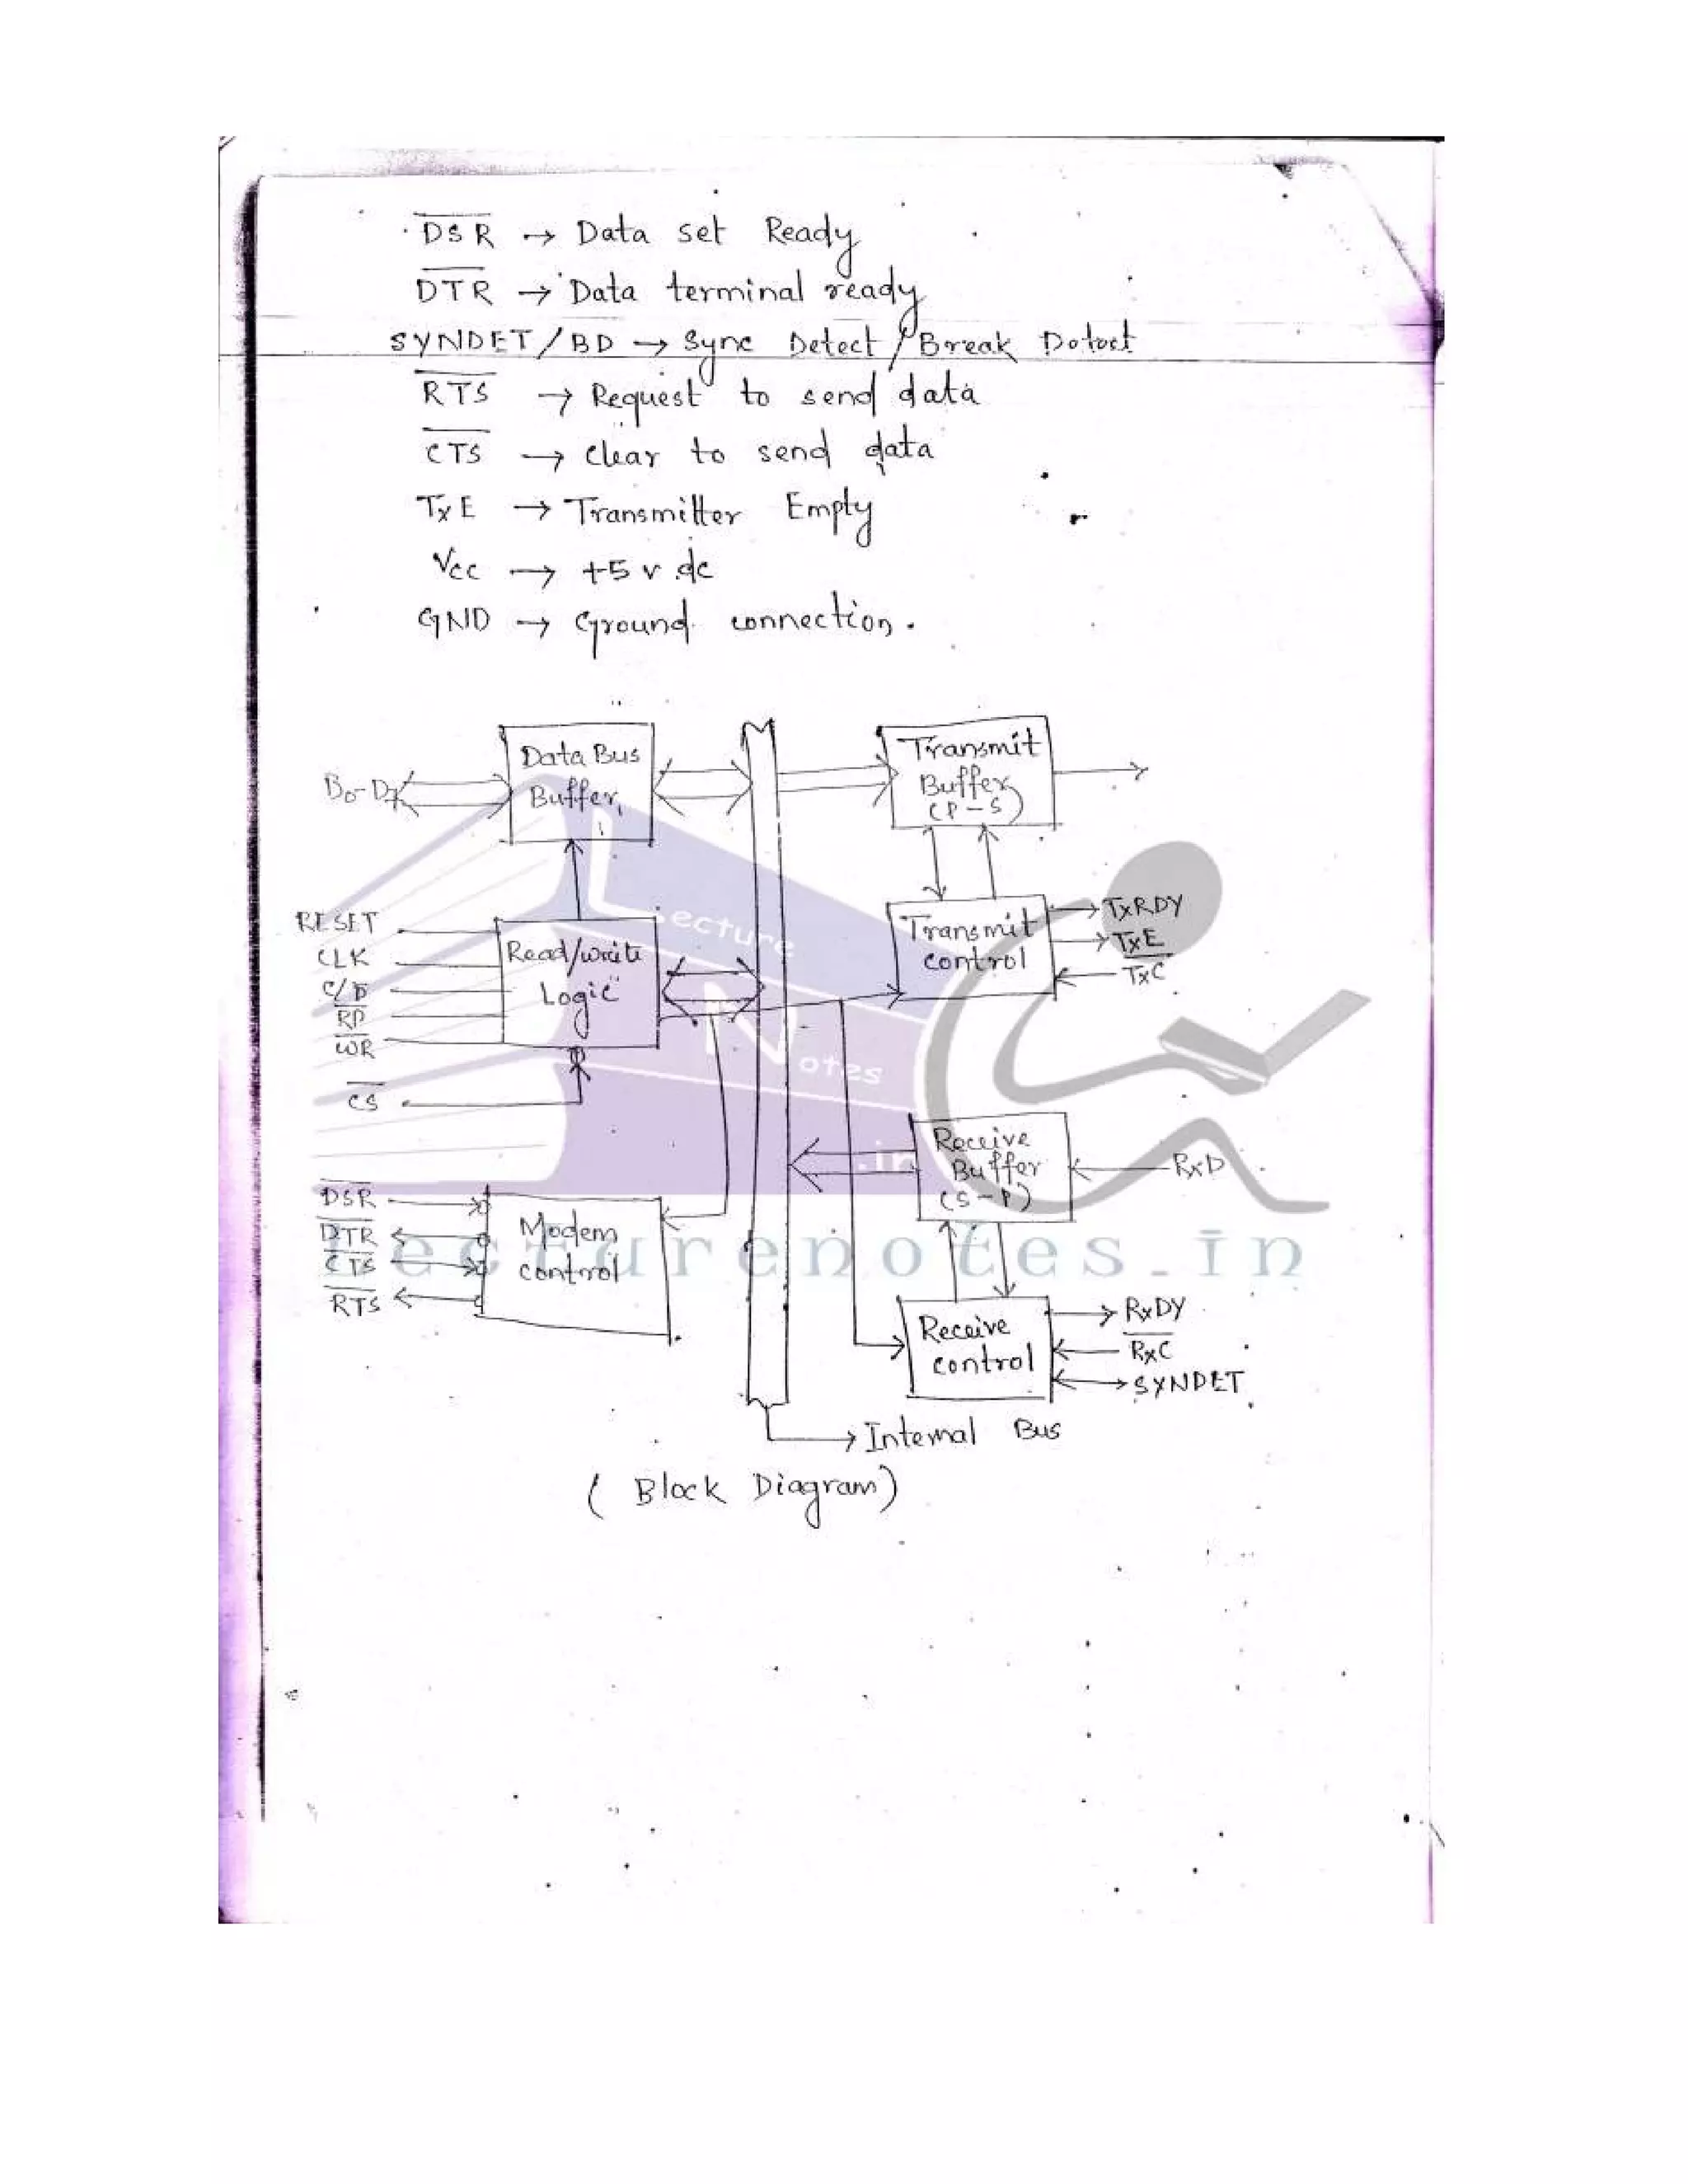 D̅S̅R̅ → Data set Ready
D̅T̅R̅ → Data terminal ready
SYNDET/BD → Sync Detect/Break Detect
R̅T̅S̅ → Request to send data
C̅T̅S̅ → clear to send data
TxE → Transmitter Empty
Vcc → +5 v dc
GND → Ground connection.
Data Bus
Buffer
D0-D7
Transmit
Buffer
(P-S)
RESET
CLK
C/D̅
R̅D̅
W̅R̅
C̅S̅
Read/write
Logic
Transmit
control
TxRDY
TxE
T̅x̅C̅
Receive
Buffer
(S-P)
RxD
D̅S̅R̅
D̅T̅R̅
C̅T̅S̅
R̅T̅S̅
Modem
control
Receive
control
RxDY
R̅x̅C̅
SYNDET
→ Internal Bus
( Block Diagram)
Lecture
Notes
.in
Lecturenotes.in